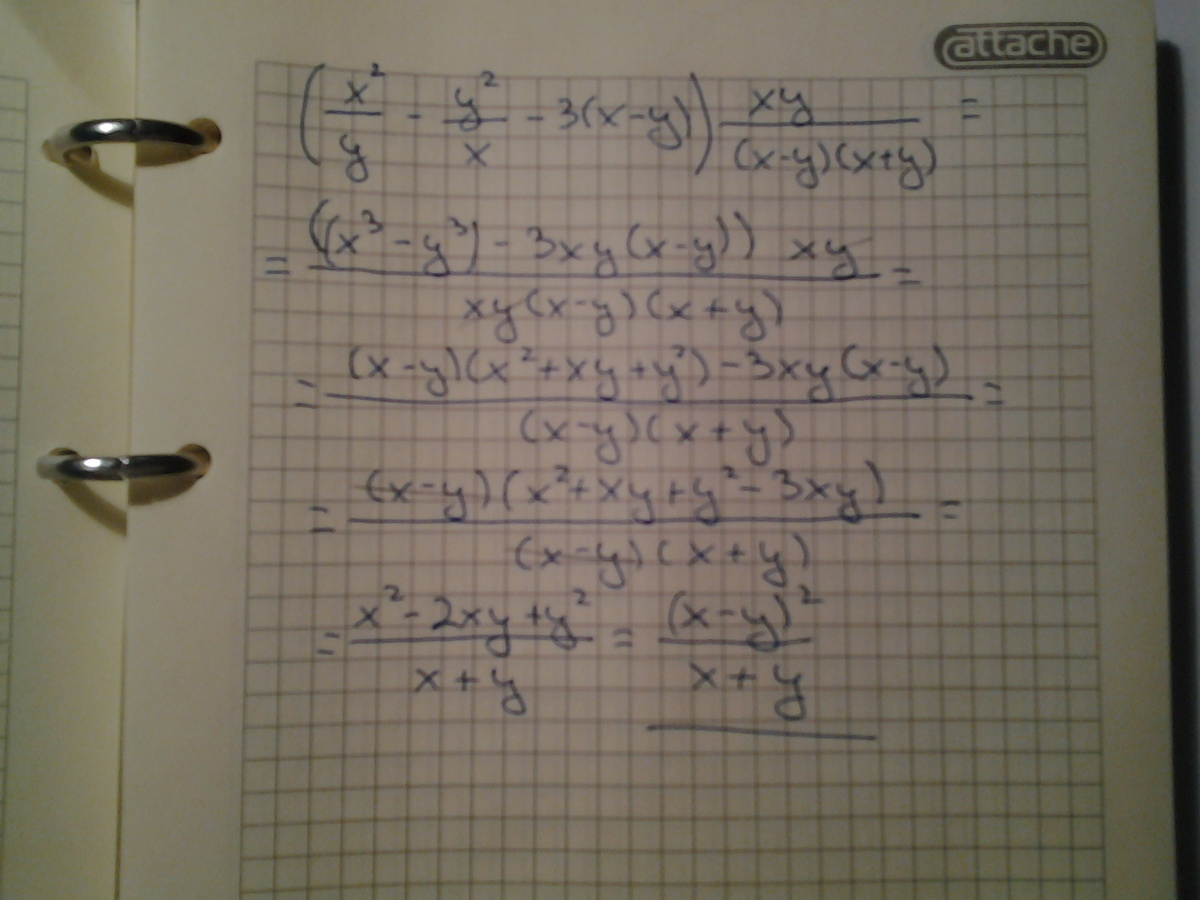 attache
(x²/y - y²/x - 3(x-y)) xy/((x-y)(x+y)) =
= ((x³-y³) - 3xy(x-y)) xy / (xy(x-y)(x+y)) =
= ((x-y)(x²+xy+y²) - 3xy(x-y)) / ((x-y)(x+y)) =
= (x-y)(x²+xy+y²-3xy) / ((x-y)(x+y)) =
= (x²-2xy+y²)/(x+y) = (x-y)²/(x+y)